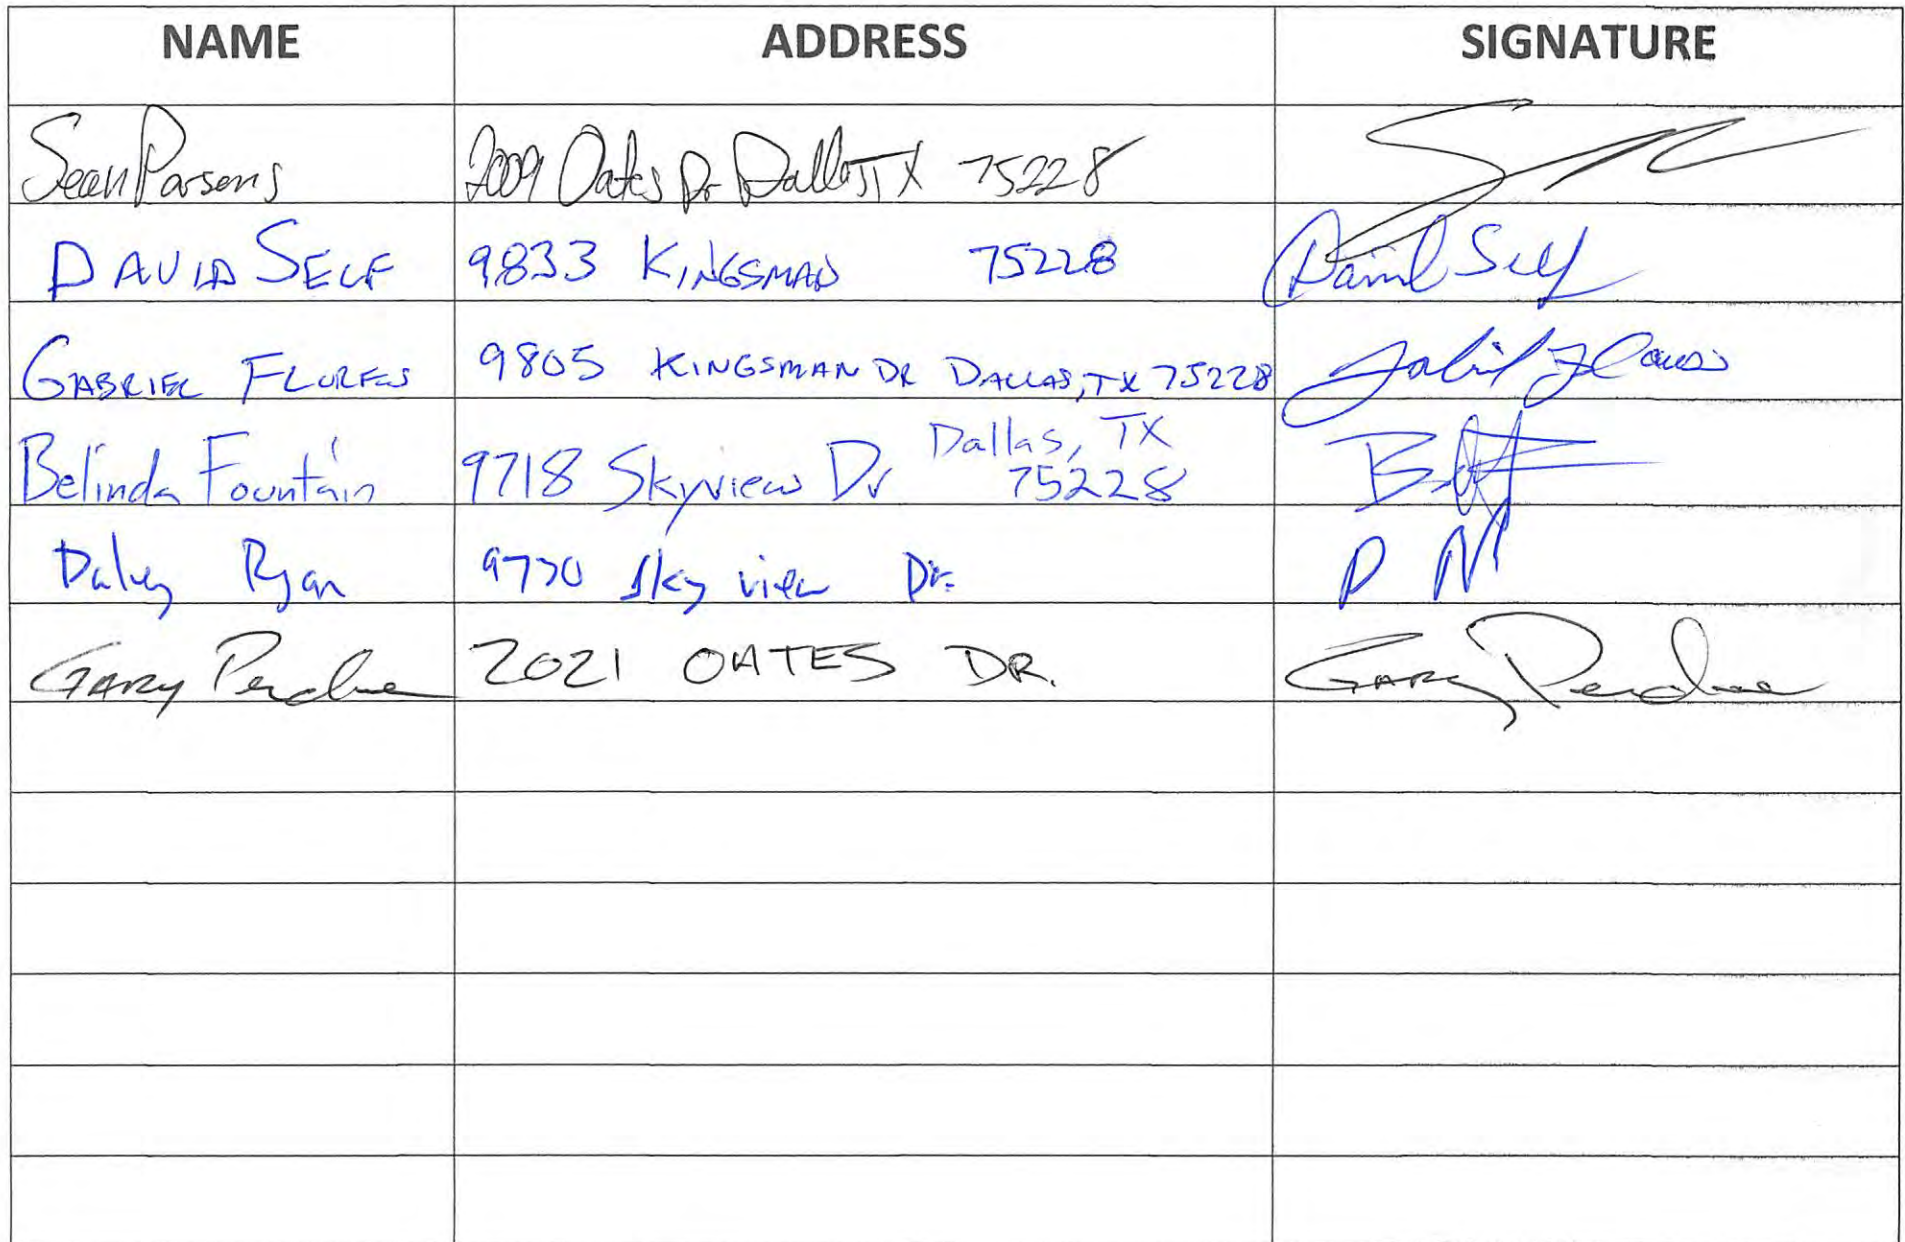 NAME ADDRESS SIGNATURE
Sean Parsons 2009 Oates Dr Dallas TX 75228
DAVID SELF 9833 KINGSMAN 75228 David Self
GABRIEL FLORES 9805 KINGSMAN DR DALLAS, TX 75228 Gabriel Flores
Belinda Fountain 9718 Skyview Dr Dallas, TX 75228
Ryan 9730 Sky view Dr.
GARY Perdue 2021 OATES DR. GARY Perdue